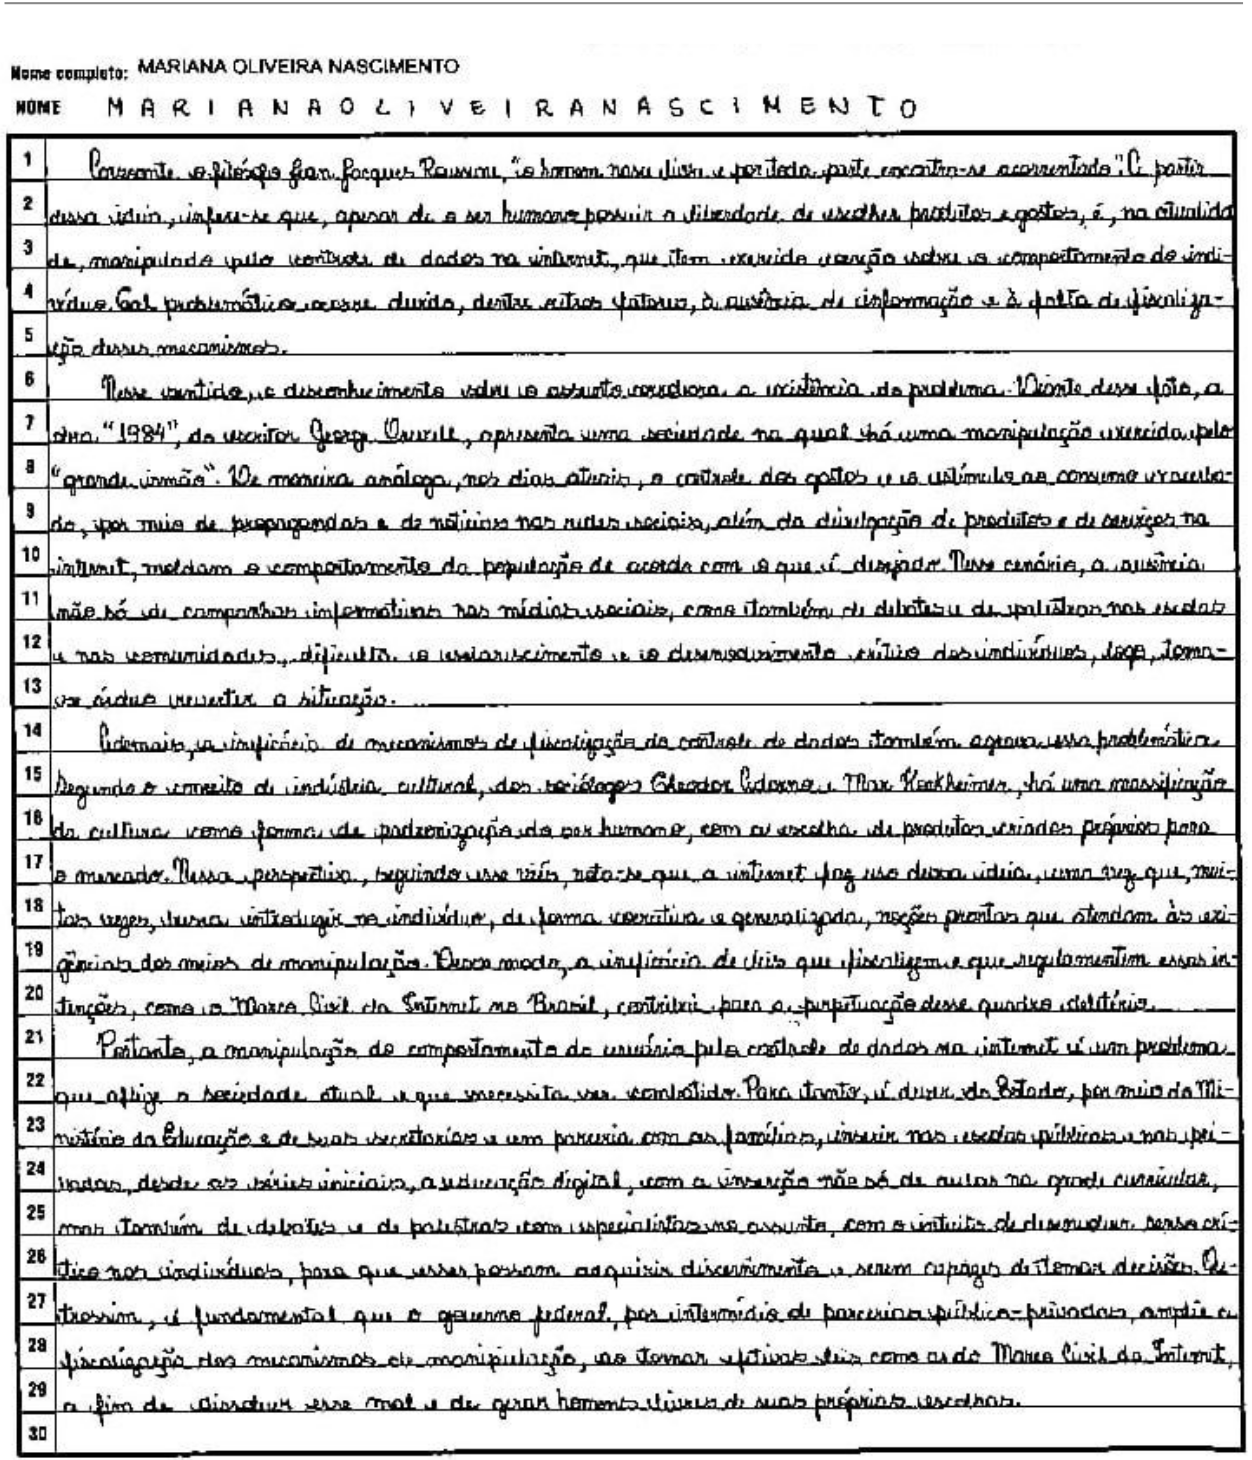 Nome completo: MARIANA OLIVEIRA NASCIMENTO
NOME MARIANAOLIVEIRANASCIMENTO
1 Consoante o filósofo Jean Jacques Rousseau, "o homem nasce livre e por toda parte encontra-se acorrentado". A partir
2 dessa ideia, infere-se que, apesar de o ser humano possuir a liberdade de escolher produtos e gostos, é, na atualida
3 de, manipulado pelo controle de dados na internet, que tem exercido coerção sobre o comportamento do indi-
4 víduo. Tal problemática ocorre devido, dentre outros fatores, à ausência de informação e à falta de fiscaliza-
5 ção desses mecanismos.
6 Nesse sentido, o desconhecimento sobre o assunto corrobora a existência do problema. Diante desse fato, a
7 obra "1984", do escritor George Orwell, apresenta uma sociedade na qual há uma manipulação exercida pelo
8 "grande irmão". De maneira análoga, nos dias atuais, o controle dos gostos e o estímulo ao consumo exacerba-
9 do, por meio de propagandas e de notícias nas redes sociais, além da divulgação de produtos e de serviços na
10 internet, moldam o comportamento da população de acordo com o que é desejado. Nesse cenário, a ausência
11 não só de campanhas informativas nas mídias sociais, como também de debates e de palestras nas escolas
12 e nas comunidades, dificulta o esclarecimento e o desenvolvimento crítico dos indivíduos, logo, torna-
13 se árduo reverter a situação.
14 Ademais, a ineficácia de mecanismos de fiscalização do controle de dados também agrava essa problemática.
15 Segundo o conceito de indústria cultural, dos sociólogos Theodor Adorno e Max Horkheimer, há uma massificação
16 da cultura como forma de padronização do ser humano, com a escolha de produtos criados próprios para
17 o mercado. Nessa perspectiva, seguindo esse viés, nota-se que a internet faz uso dessa ideia, uma vez que, mui-
18 tas vezes, busca introduzir no indivíduo, de forma coercitiva e generalizada, noções prontas que atendam às exi-
19 gências dos meios de manipulação. Desse modo, a ineficácia de leis que fiscalizem e que regulamentem essas in-
20 tenções, como o Marco Civil da Internet no Brasil, contribui para a perpetuação desse quadro deletério.
21 Portanto, a manipulação do comportamento do usuário pelo controle de dados na internet é um problema
22 que aflige a sociedade atual e que necessita ser combatido. Para tanto, é dever do Estado, por meio do Mi-
23 nistério da Educação e de suas secretarias e em parceria com as famílias, inserir nas escolas públicas e nas pri-
24 vadas, desde as séries iniciais, a educação digital, com a inserção não só de aulas na grade curricular,
25 mas também de debates e de palestras com especialistas no assunto, com o intuito de desenvolver senso crí-
26 tico nos indivíduos, para que esses possam adquirir discernimento e serem capazes de tomar decisões. Ou-
27 trossim, é fundamental que o governo federal, por intermédio de parcerias público-privadas, amplie a
28 fiscalização dos mecanismos de manipulação, ao tornar efetivas leis como as do Marco Civil da Internet,
29 a fim de dissolver esse mal e de gerar homens livres de suas próprias escolhas.
30